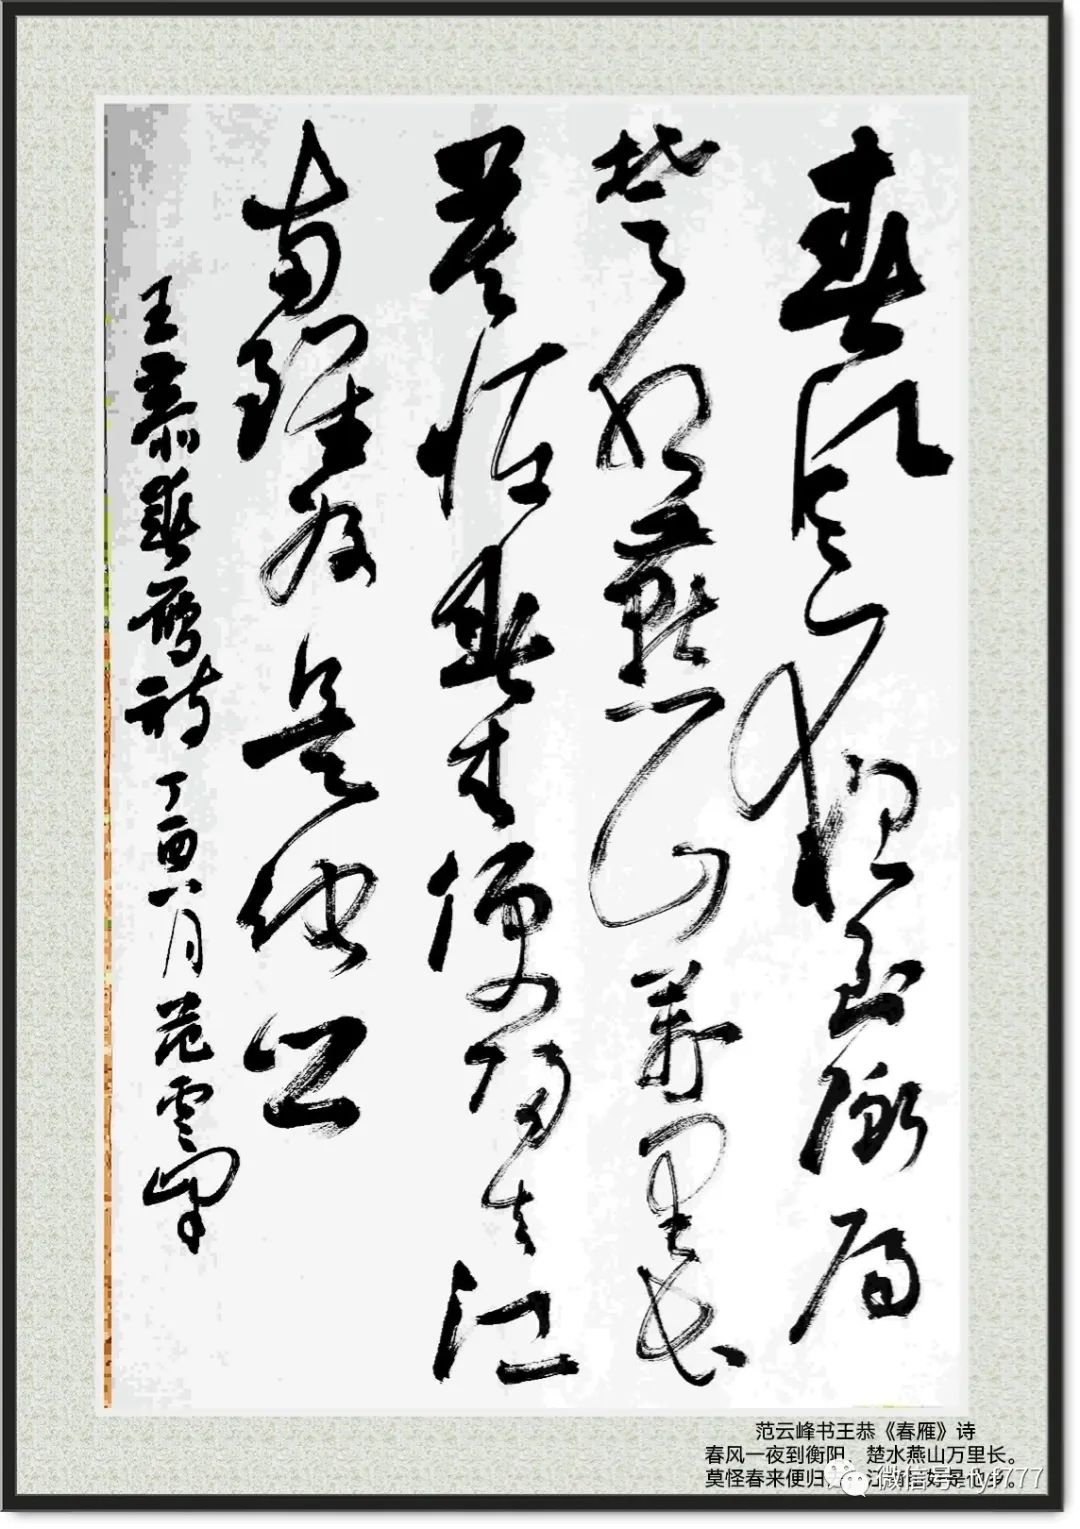 春風一夜到衡陽
楚水燕山萬里長
莫怪春來便歸去江
南雖好是他鄉
王恭春雁詩 丁酉八月 范雲峰
范云峰书王恭《春雁》诗
春风一夜到衡阳，楚水燕山万里长。
莫怪春来便归去，江南虽好是他乡。
微信号: